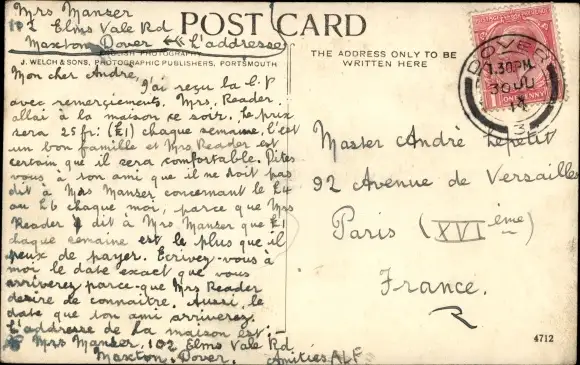 Mrs Manser
102 Elms Vale Rd
Maxton Dover << L'addresse
POST CARD
ENGLISH PHOTOGRAPHY
J. WELCH & SONS, PHOTOGRAPHIC PUBLISHERS, PORTSMOUTH
THE ADDRESS ONLY TO BE
WRITTEN HERE
Mon cher André,
J'ai reçu la C.P
avec remerciements. Mrs. Reader.
allai à la maison ce soir. Le prix
sera 25 fr: (£1) chaque semaine, C'est
un bon famille et Mrs Reader est
certain que il sera comfortable. Dites
vous à son ami que il ne doit pas
dit à Mrs Manser concernant le £4
au £6 chaque moi, parce que Mrs
Reader dit à Mrs Manser que £1
chaque semaine est le plus que il
peux de payer. Ecrivez-vous à
moi le date exact que vous
arriverez parce-que Mrs Reader
desire de connaitre. Aussi, le
date que son ami arriverez.
L'addresse de la maison est:-
Mrs Manser, 102 Elms Vale Rd
Maxton. Dover. Amitiés ALF
DOVER
1.30PM
30 JU
ONE PENNY
Master André Lepetit
92 Avenue de Versailles
Paris (XVI ème)
France.
4712